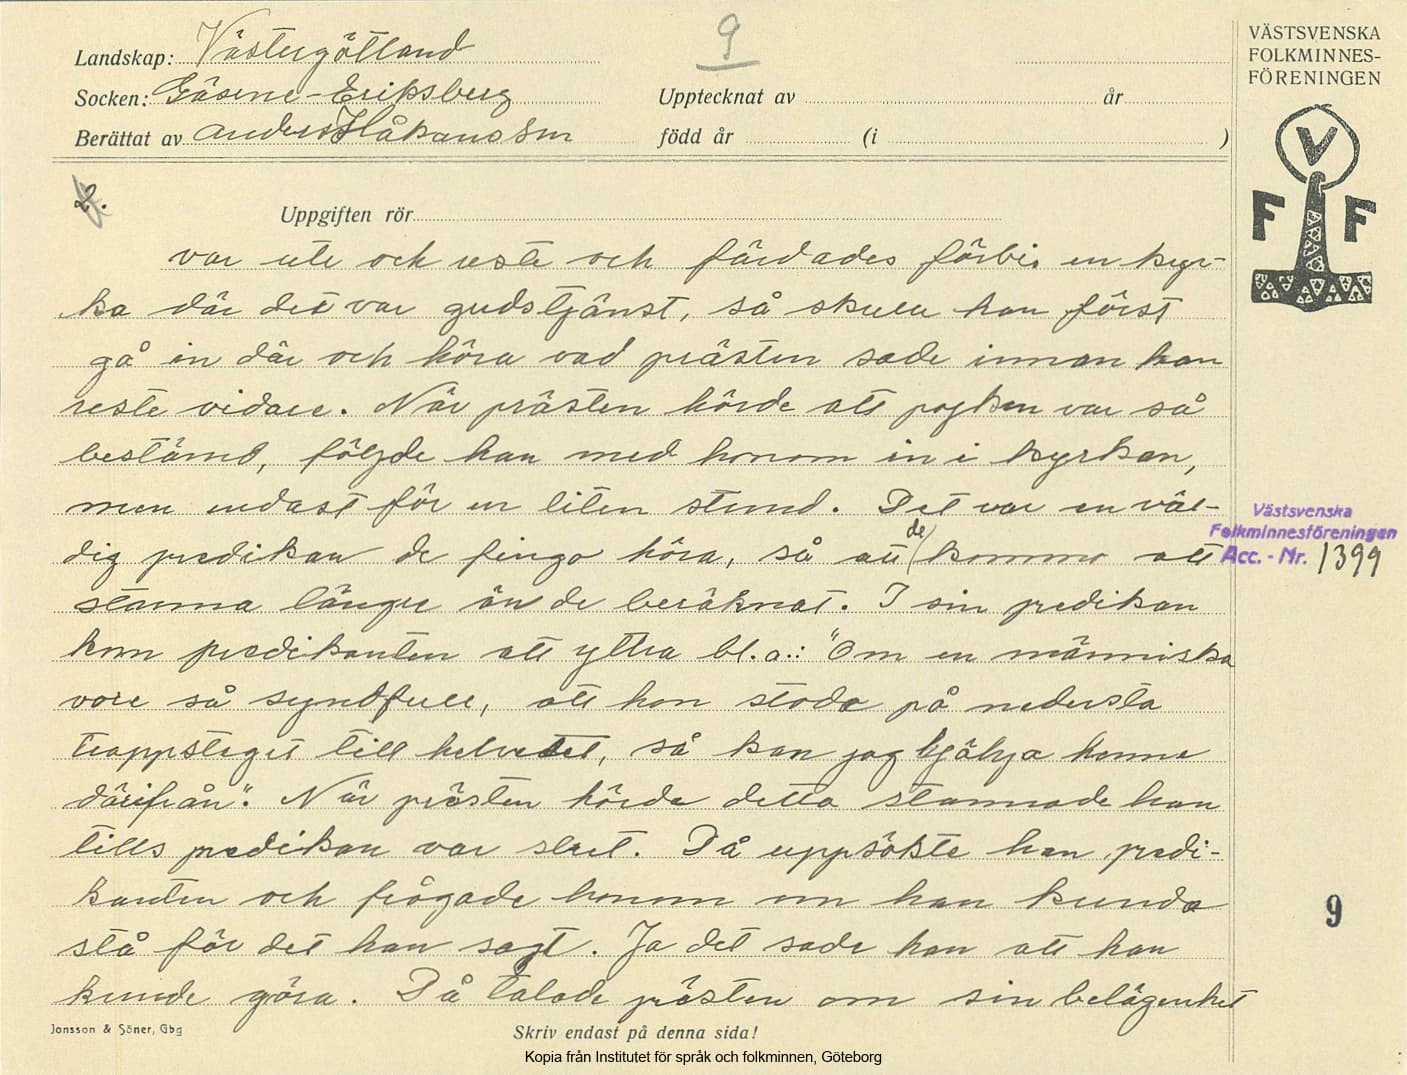 9
VÄSTSVENSKA
FOLKMINNES-
FÖRENINGEN
Landskap: Västergötland
Socken: Gäsene-Eriksberg
Upptecknat av år
Berättat av Anders Håkansson
född år (i )
V
F F
2.
Uppgiften rör
var ute och reste och färdades förbi en kyr-
ka där det var gudstjänst, så skulle han först
gå in där och höra vad prästen sade innan han
reste vidare. När prästen hörde att pojken var så
bestämd, följde han med honom in i kyrkan,
men endast för en liten stund. Det var en väl-
dig predikan de fingo höra, så att de kommo att
stanna längre än de beräknat. I sin predikan
kom predikanten att yttra bl.a.: "Om en människa
vore så syndfull, att hon stode på nedersta
trappsteget till helvetet, så kan jag hjälpa henne
därifrån". När prästen hörde detta stannade han
tills predikan var slut. Då uppsökte han predi-
kanten och frågade honom om han kunde
stå för det han sagt. Ja det sade han att han
kunde göra. Då talade prästen om sin belägenhet
Västsvenska
Folkminnesföreningen
Acc. - Nr. 1399
9
Jonsson & Söner, Gbg
Skriv endast på denna sida!
Kopia från Institutet för språk och folkminnen, Göteborg